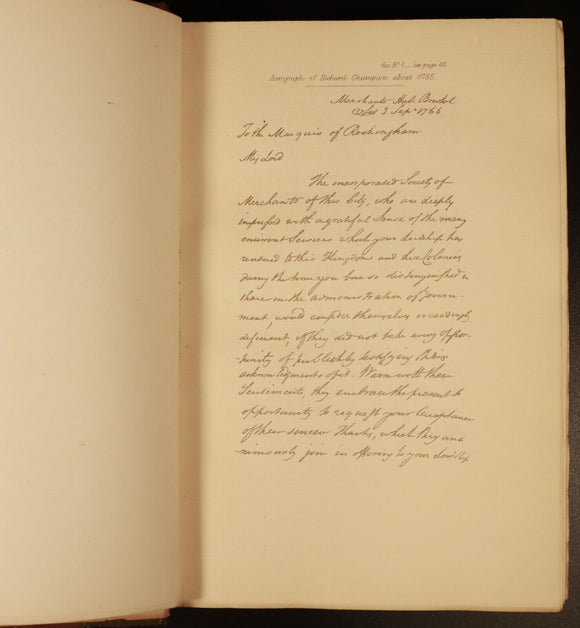 Fac. No. 1 ... see page 48.
Autograph of Richard Champion about 1785.
Merchants Hall, Bristol
3 Sepr. 1766
To the Marquis of Rockingham
My Lord
The incorporated Society of
Merchants of this City, who are deeply
impressed with a grateful Sense of the many
Services which your Lordship has
rendered to this Kingdom and her Colonies
during the term you bore so distinguished a
share in the administration of Govern-
ment, would consider themselves exceedingly
deficient, if they did not take every oppor-
-tunity of publickly testifying their
acknowledgments of it. Warm with these
Sentiments, they embrace the present
opportunity to request your Acceptance
of their sincere Thanks, which they una-
-nimously join in offering to your Lordship